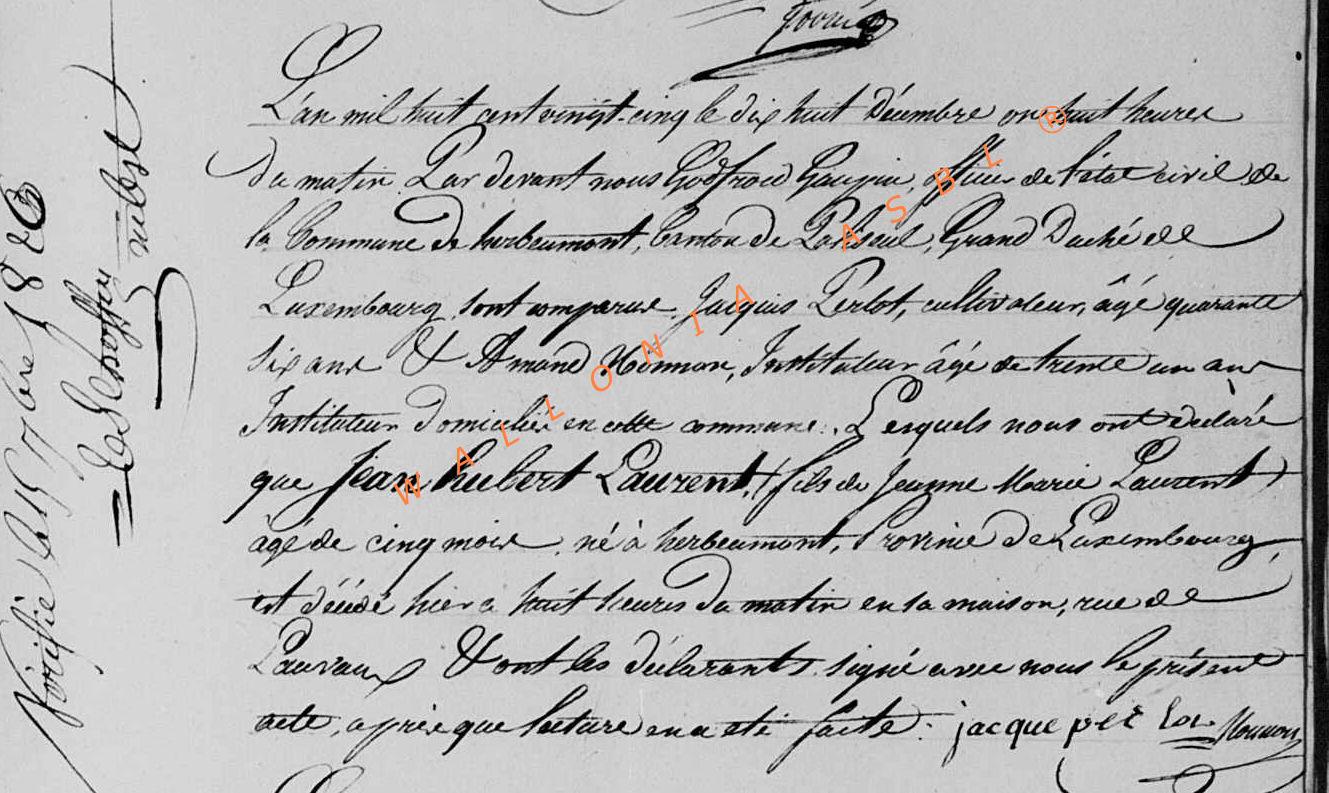 L'an mil huit cent vingt-cinq le dix huit Décembre on huit heures
du matin Par devant nous Godfroid Gaupin, officier de l'état civil de
la Commune de herbeumont, Canton de Paliseul, Grand Duché de
Luxembourg sont comparus Jacques Perlot, cultivateur, âgé quarante
six ans & Amand Monnon, Instituteur âgé de trente un ans
Instituteur domiciliés en cette commune. Lesquels nous ont déclaré
que Jean hubert Laurent, (fils de Jeanne Marie Laurent)
âgé de cinq mois né à herbeumont, Province de Luxembourg,
est décédé hier a huit heures du matin en sa maison, rue de
Lauvaux & ont les déclarants signé avec nous le présent
acte, après que lecture en a été faite. jacque per lot Monnon
Vérifié le 15 7bre 1826
WALLONIA ASBL ®